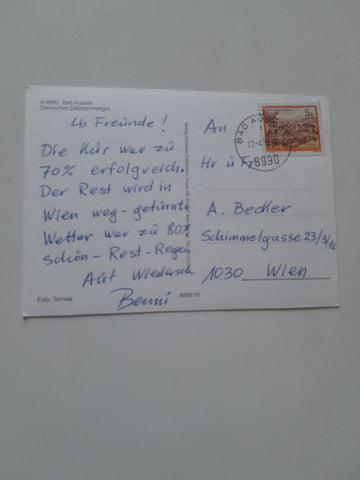 A-8990 Bad Aussee
Steirisches Salzkammergut
Lb. Freunde!
Die Kur war zu
70% erfolgreich.
Der Rest wird in
Wien weg-geturnt.
Wetter war zu 80%
schön - Rest-Regen
Auf Wiedersch
Benni
Foto: Tornow
8990/15
An
Hr u Fr
A. Becker
Schimmelgasse 23/3/12
1030 Wien
BAD AU
8990
5S